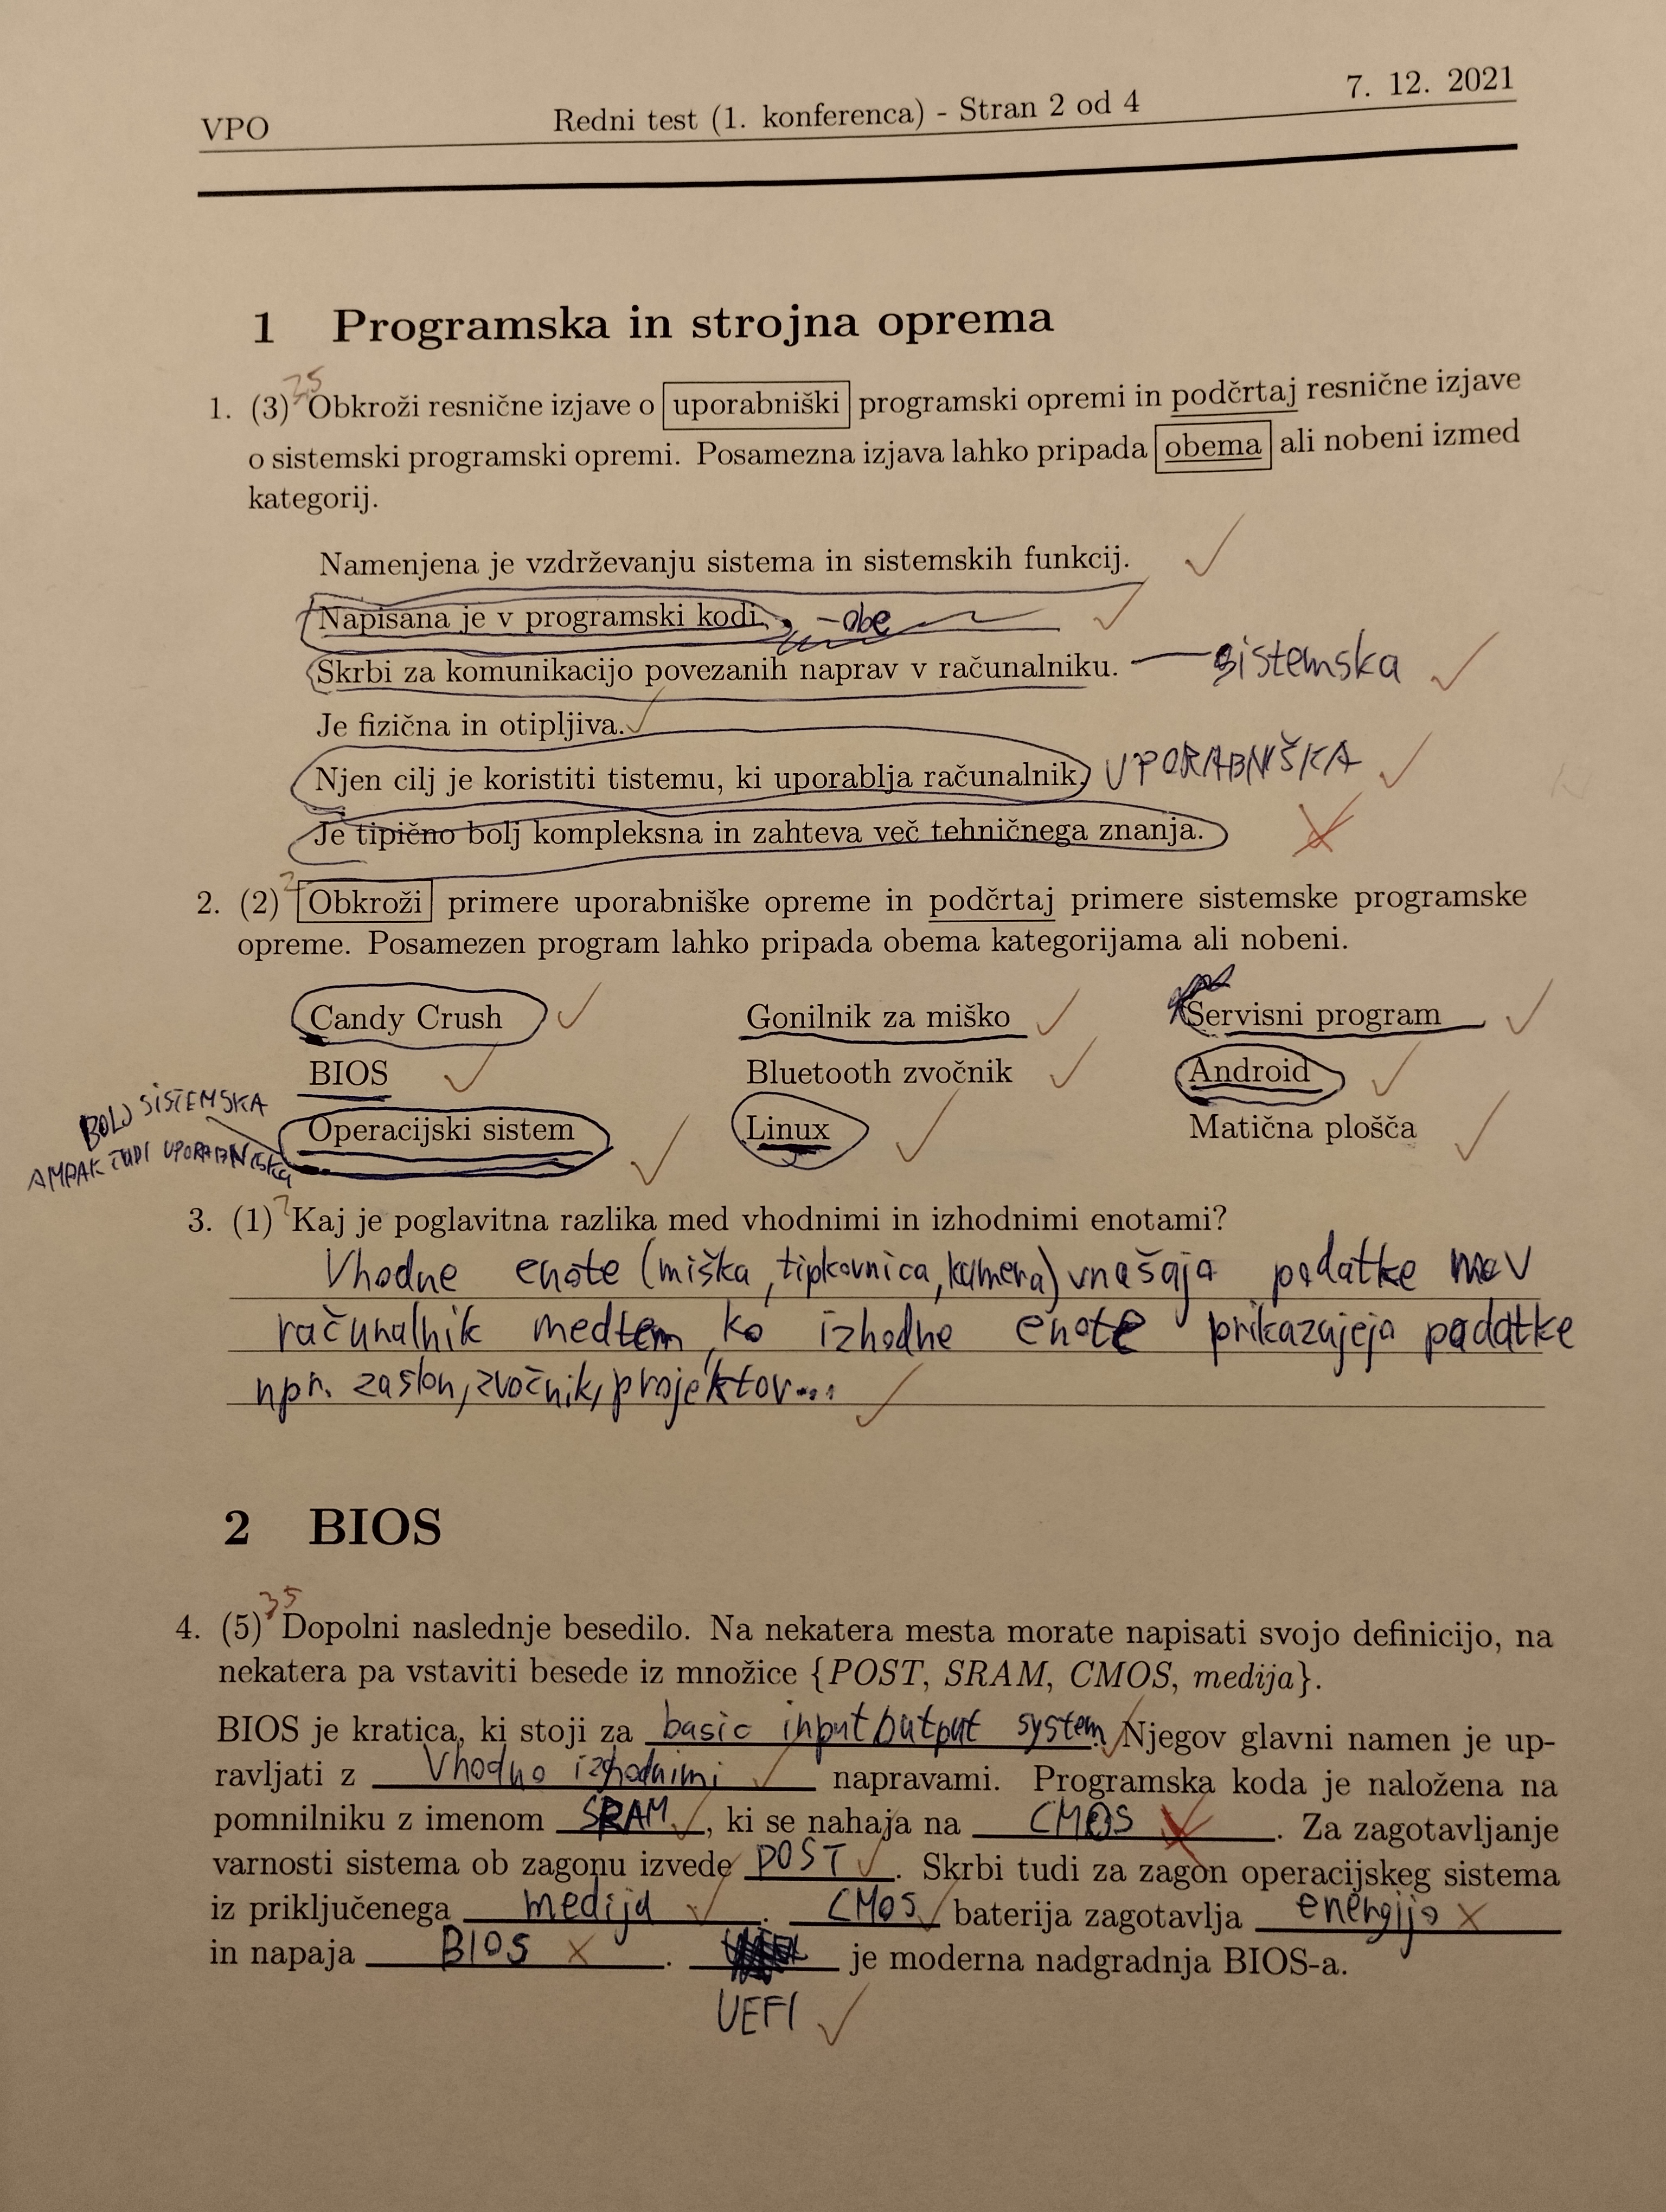 VPO Redni test (1. konferenca) - Stran 2 od 4 7. 12. 2021
1 Programska in strojna oprema
1. (3) 2,5 Obkroži resnične izjave o uporabniški programski opremi in podčrtaj resnične izjave
o sistemski programski opremi. Posamezna izjava lahko pripada obema ali nobeni izmed
kategorij.
Namenjena je vzdrževanju sistema in sistemskih funkcij.
Napisana je v programski kodi. - obe
Skrbi za komunikacijo povezanih naprav v računalniku. — sistemska
Je fizična in otipljiva.
Njen cilj je koristiti tistemu, ki uporablja računalnik. UPORABNIŠKA
Je tipično bolj kompleksna in zahteva več tehničnega znanja.
2. (2) 2 Obkroži primere uporabniške opreme in podčrtaj primere sistemske programske
opreme. Posamezen program lahko pripada obema kategorijama ali nobeni.
Candy Crush Gonilnik za miško Servisni program
BIOS Bluetooth zvočnik Android
BOLJ SISTEMSKA
Operacijski sistem Linux Matična plošča
AMPAK TUDI UPORABNIŠKA
3. (1) Kaj je poglavitna razlika med vhodnimi in izhodnimi enotami?
Vhodne enote (miška, tipkovnica, kamera) vnašajo podatke v
računalnik medtem ko izhodne enote prikazujejo podatke
npr. zaslon, zvočnik, projektor...
2 BIOS
4. (5) 3,5 Dopolni naslednje besedilo. Na nekatera mesta morate napisati svojo definicijo, na
nekatera pa vstaviti besede iz množice {POST, SRAM, CMOS, medija}.
BIOS je kratica, ki stoji za basic input/output system. Njegov glavni namen je up-
ravljati z Vhodno izhodnimi napravami. Programska koda je naložena na
pomnilniku z imenom SRAM, ki se nahaja na CMOS. Za zagotavljanje
varnosti sistema ob zagonu izvede POST. Skrbi tudi za zagon operacijskeg sistema
iz priključenega medija. CMOS baterija zagotavlja energijo
in napaja BIOS. je moderna nadgradnja BIOS-a.
UEFI